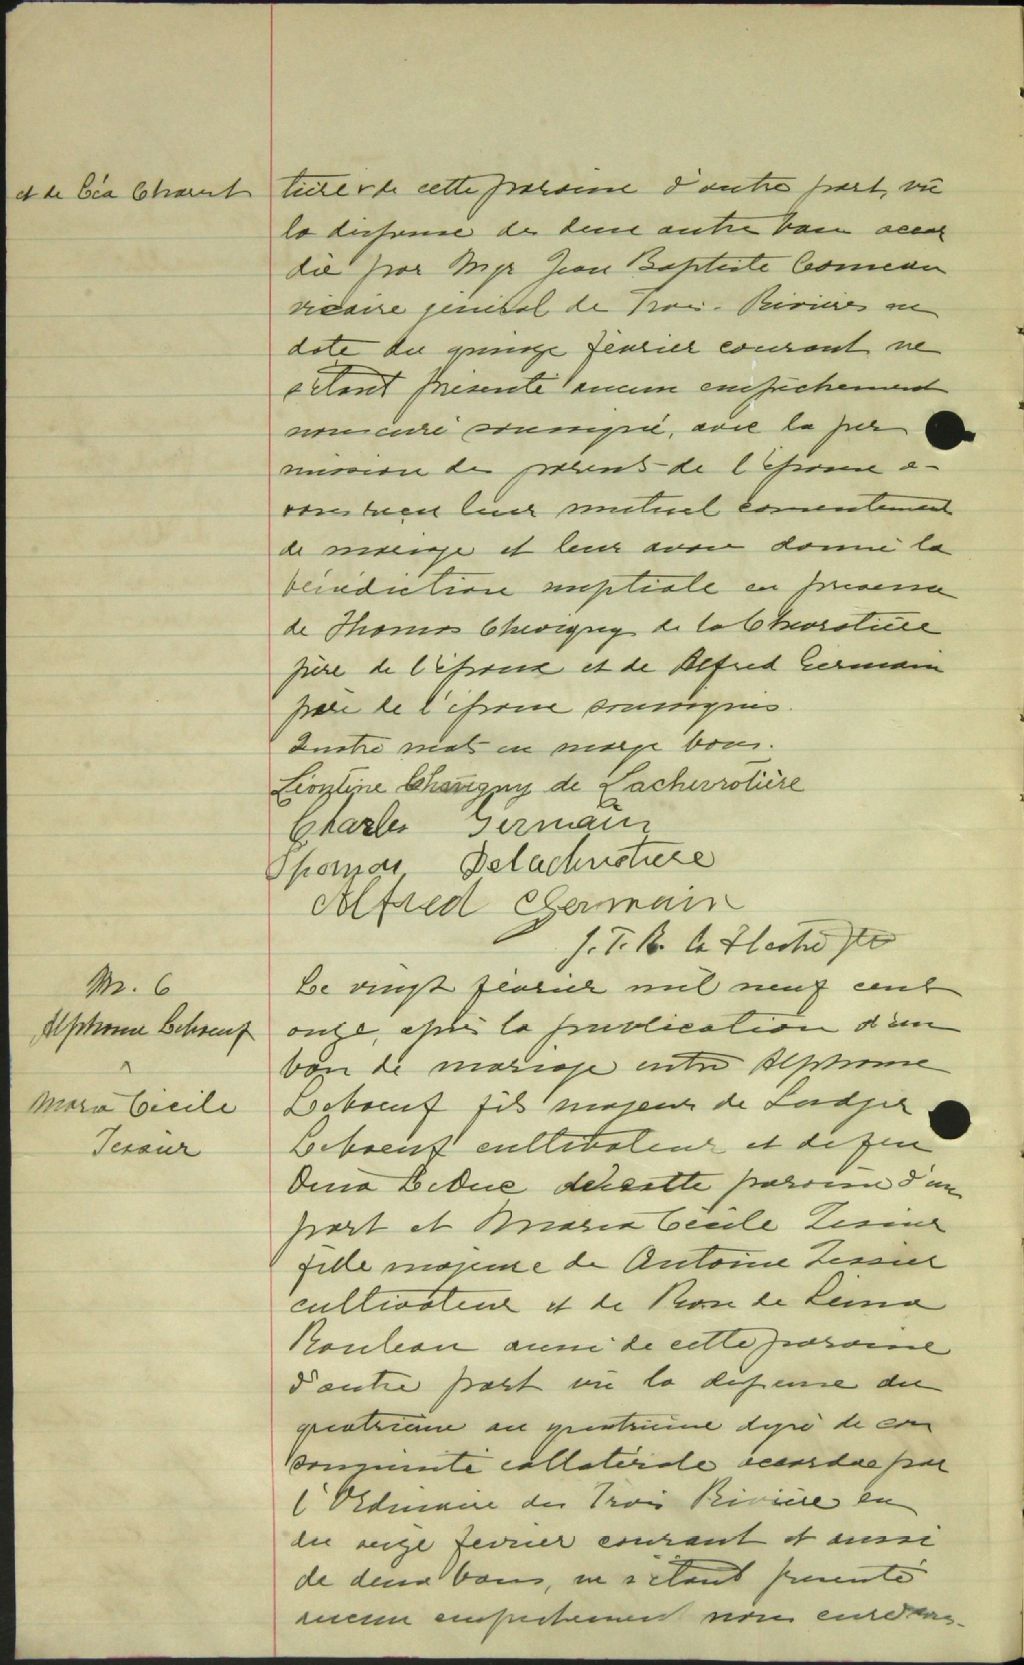 et de Léa Charest
tière & de cette paroisse d'autre part, vu
la dispense de deux autre bans accor
dée par Mgr Jean Baptiste Comeau
vicaire général de Trois-Rivières en
date du quinze février courant ne
s'étant présenté aucun empêchement
nous curé soussigné, avec la per
mission des parents de l'épouse a-
vons reçu leur mutuel consentement
de mariage et leur avons donné la
bénédiction nuptiale en présence
de Thomas Chevigny de la Chevrotière
père de l'époux et de Alfred Germain
père de l'épouse soussignés.
Quatre mots en marge bons.
Léontine Chavigny de Lachevrotière
Charles Germain
Thomas Delachevrotiere
Alfred Germain
J. T. R. Laflèche Ptre
M. 6
Alphonse Leboeuf
^
Maria Cécile
Tessier
Le vingt février mil neuf cent
onze, après la publication d'un
ban de mariage entre Alphonse
Leboeuf fils majeur de Ludger
Leboeuf cultivateur et de feu
Dina LeDuc de cette paroisse d'une
part et Maria Cécile Tessier
fille majeure de Antoine Tessier
cultivateur et de Rose de Lima
Rouleau aussi de cette paroisse
d'autre part vu la dispense du
quatrième au quatrième degré de con
sanguinité collatérale accordée par
l'Ordinaire des Trois Rivière en
du seize février courant et aussi
de deux bans, ne s'étant présenté
aucun empêchement nous curé sous-